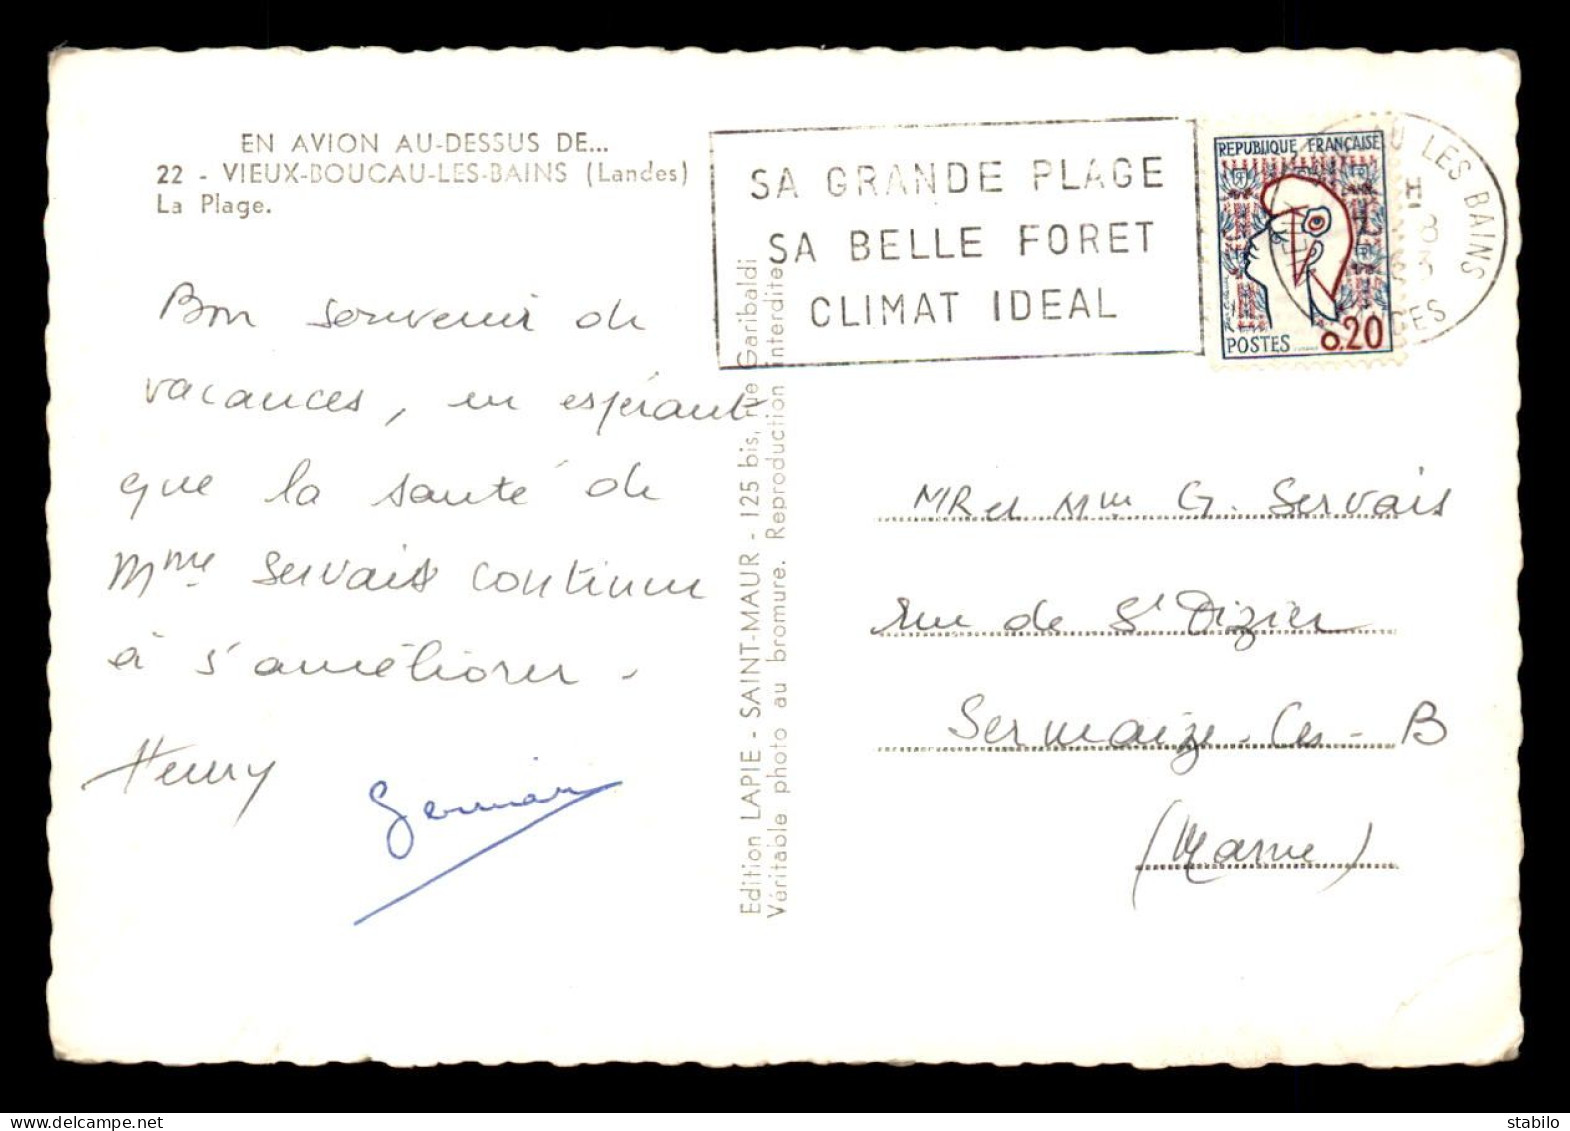 EN AVION AU-DESSUS DE...
22 - VIEUX-BOUCAU-LES-BAINS (Landes)
La Plage.
Bon souvenir de
vacances, en espérant
que la santé de
Mme Servais continue
à s'améliorer.
Henry
Germain
Edition LAPIE - SAINT-MAUR - 125 bis, rue Garibaldi
Véritable photo au bromure. Reproduction interdite
SA GRANDE PLAGE
SA BELLE FORET
CLIMAT IDEAL
REPUBLIQUE FRANÇAISE
POSTES 0,20
AU LES BAINS
MR et Mme G. Servais
rue de St Dizier
Sermaize-les-B
(Marne)
stabilo